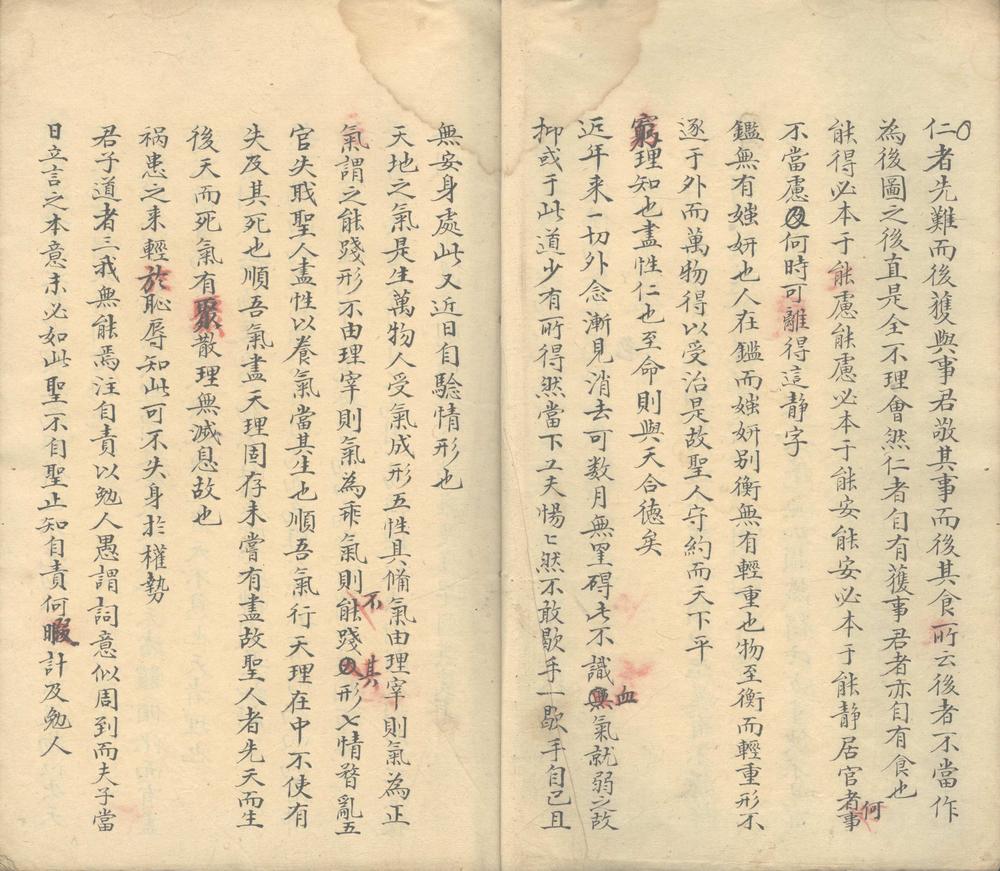 仁者先難而後獲與事君敬其事而後其食所云後者不當作
為後圖之後直是全不理會然仁者自有獲事君者亦自有食也
能得必本于能慮能慮必本于能安能安必本于能靜居官者何事
不當慮又何時可離得這靜字
鑑無有媸妍也人在鑑而媸妍別衡無有輕重也物至衡而輕重形不
逐于外而萬物得以受治是故聖人守約而天下平
窮理知也盡性仁也至命則與天合德矣
近年来一切外念漸見消去可数月無罣碍此不識血氣就弱之故
抑或于此道少有所得然當下工夫惕〻然不敢歇手一歇手自己且
無安身處此又近日自驗情形也
天地之氣是生萬物人受氣成形五性具俻氣由理宰則氣為正
氣謂之能踐形不由理宰則氣為乖氣則不能踐其形七情瞀亂五
官失職聖人盡性以養氣當其生也順吾氣行天理在中不使有
失及其死也順吾氣盡天理固存未嘗有盡故聖人者先天而生
後天而死氣有聚散理無滅息故也
禍患之来輕於恥辱知此可不失身於權勢
君子道者三我無能焉注自責以勉人愚謂詞意似周到而夫子當
日立言之本意未必如此聖不自聖止知自責何暇計及勉人